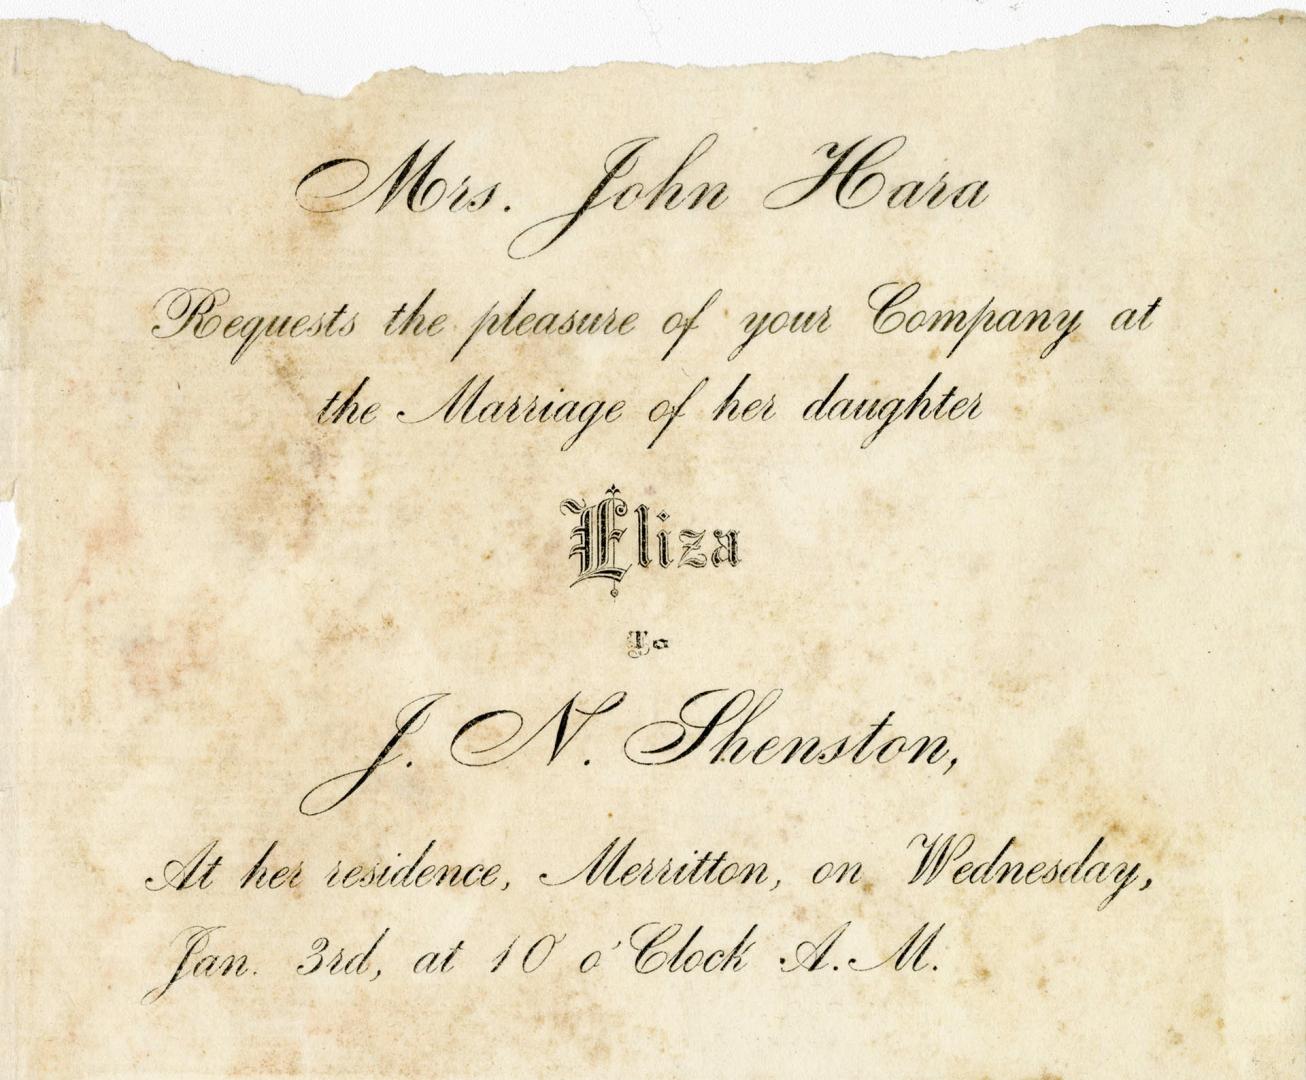 Mrs. John Hara
Requests the pleasure of your Company at
the Marriage of her daughter
Eliza
To
J. N. Shenston,
At her residence, Merritton, on Wednesday,
Jan. 3rd, at 10 o'Clock A. M.